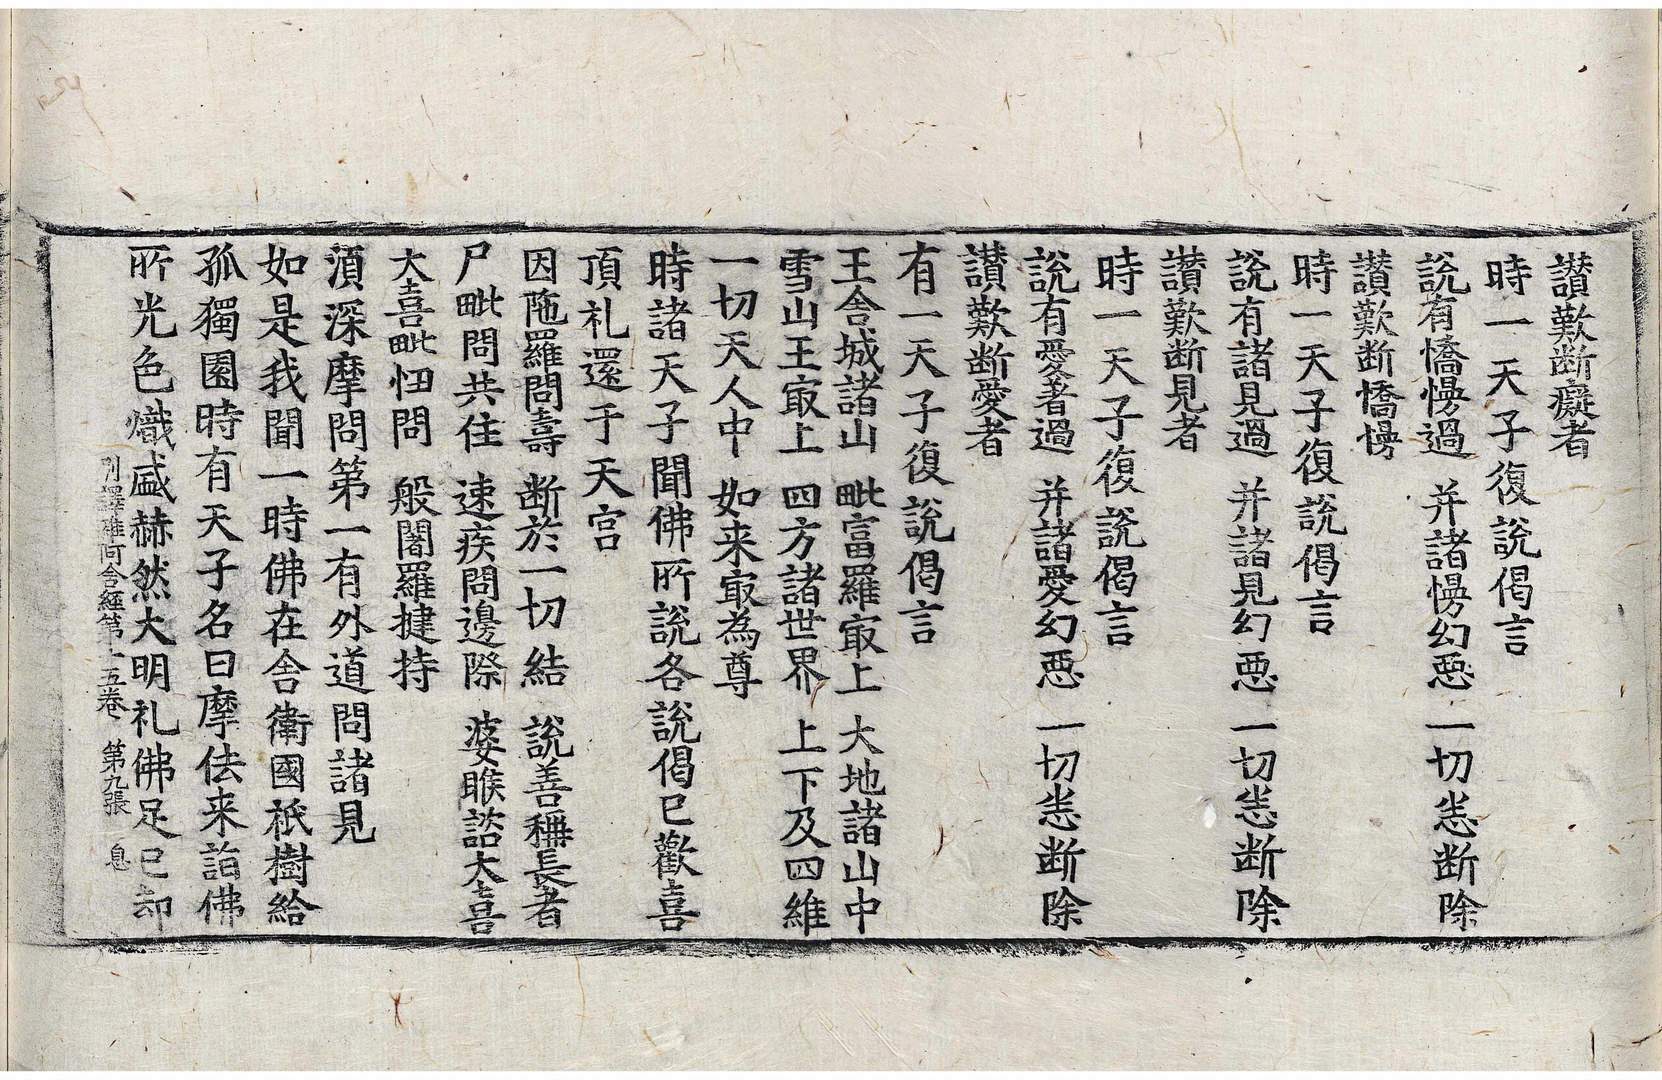 讃歎断癡者
時一天子復說偈言
說有憍慢過 并諸慢幻惡 一切悉断除
讃歎断憍慢
時一天子復說偈言
說有諸見過 并諸見幻惡 一切悉断除
讃歎断見者
時一天子復說偈言
說有愛著過 并諸愛幻惡 一切悉断除
讃歎断愛者
有一天子復說偈言
王舍城諸山 毗富羅㝡上 大地諸山中
雪山王㝡上 四方諸世界 上下及四維
一切天人中 如来㝡為尊
時諸天子聞佛所說各說偈已歡喜
頂礼還于天宮
因陁羅問壽 断於一切結 說善稱長者
尸毗問共住 速疾問邊際 婆睺諮大喜
大喜毗忸問 般闍羅揵持
湏深摩問第一有外道問諸見
如是我聞一時佛在舍衛國祇樹給
孤獨園時有天子名曰摩佉来詣佛
所光色熾盛赫然大明礼佛足已却
別譯雜阿含經第十五卷 第九張 息